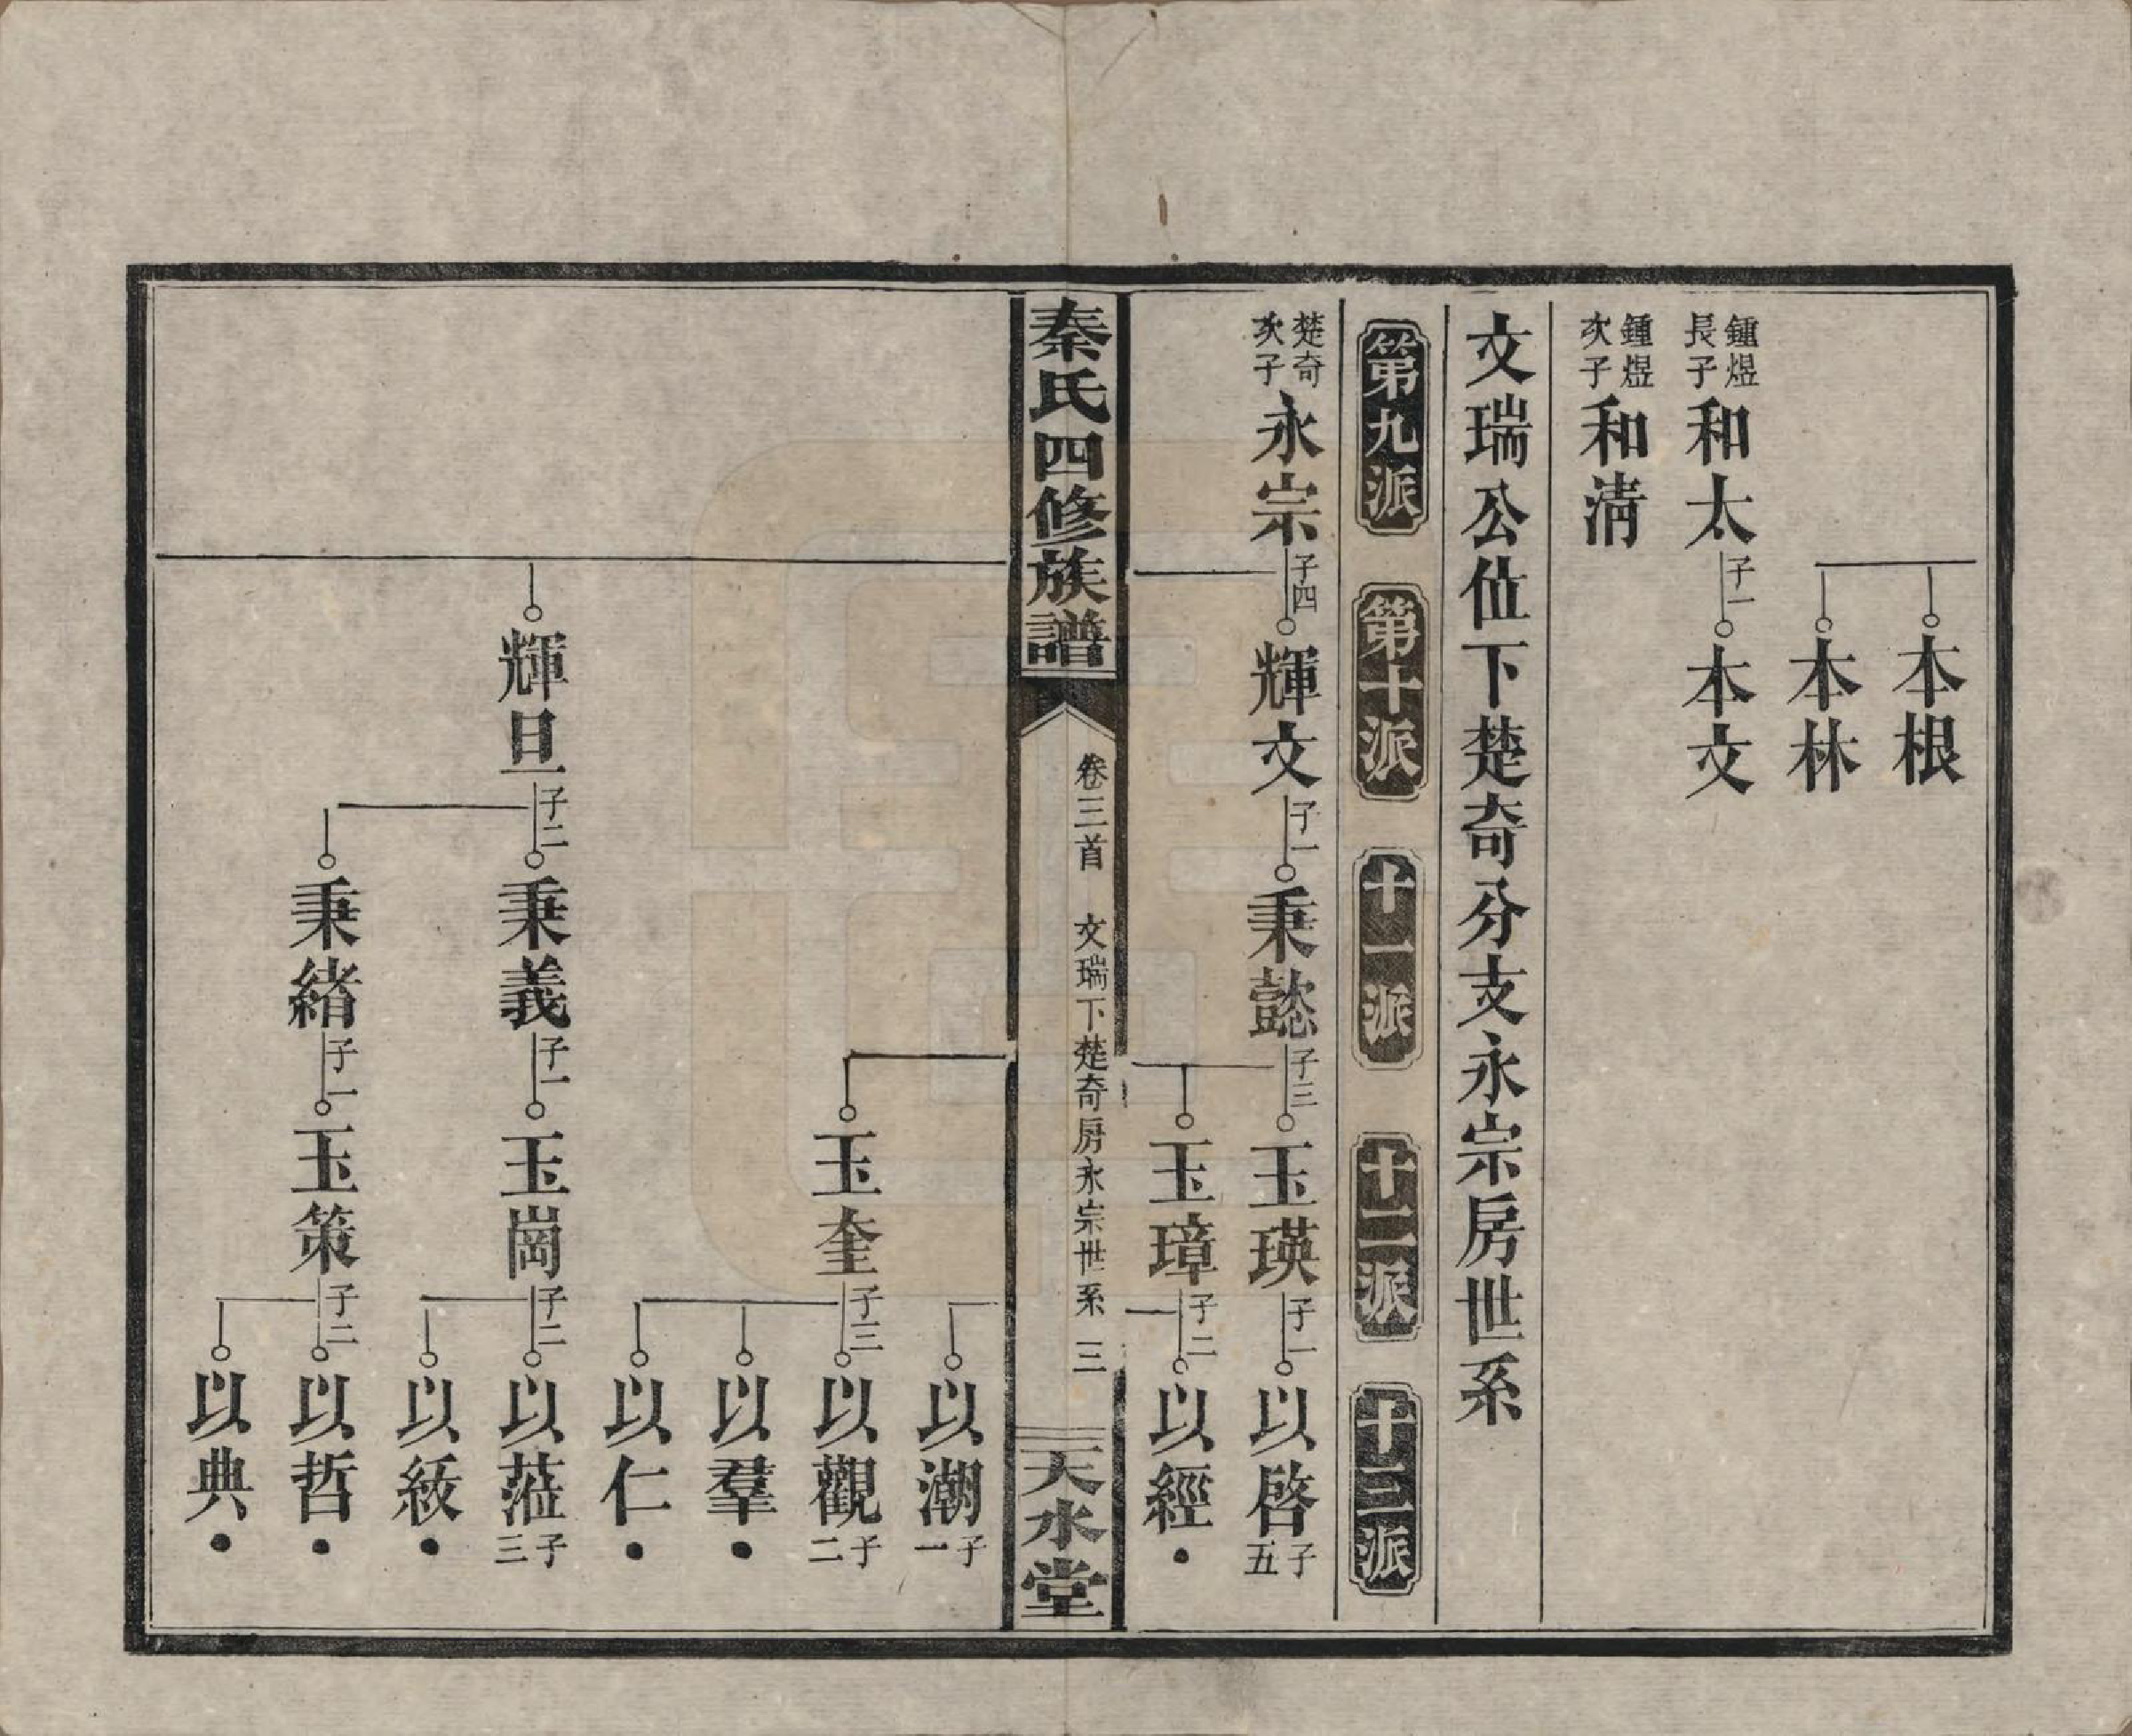 本根
本林
鍾煜長子和太子一本文
鍾煜次子和淸
文瑞公位下楚奇分支永宗房世系
第九派 第十派 十一派 十二派 十三派
楚奇次子永宗子四輝文子一秉懿子三玉瑛子一以啓子五
玉璋子二以經
秦氏四修族譜 卷三首 文瑞下楚奇房永宗世系 三 天水堂
以潮子一
玉奎子三以觀子二
以羣
以仁
輝旦子二秉義子一玉崗子二以蒞子三
以紱
秉緒子一玉策子二以哲
以典